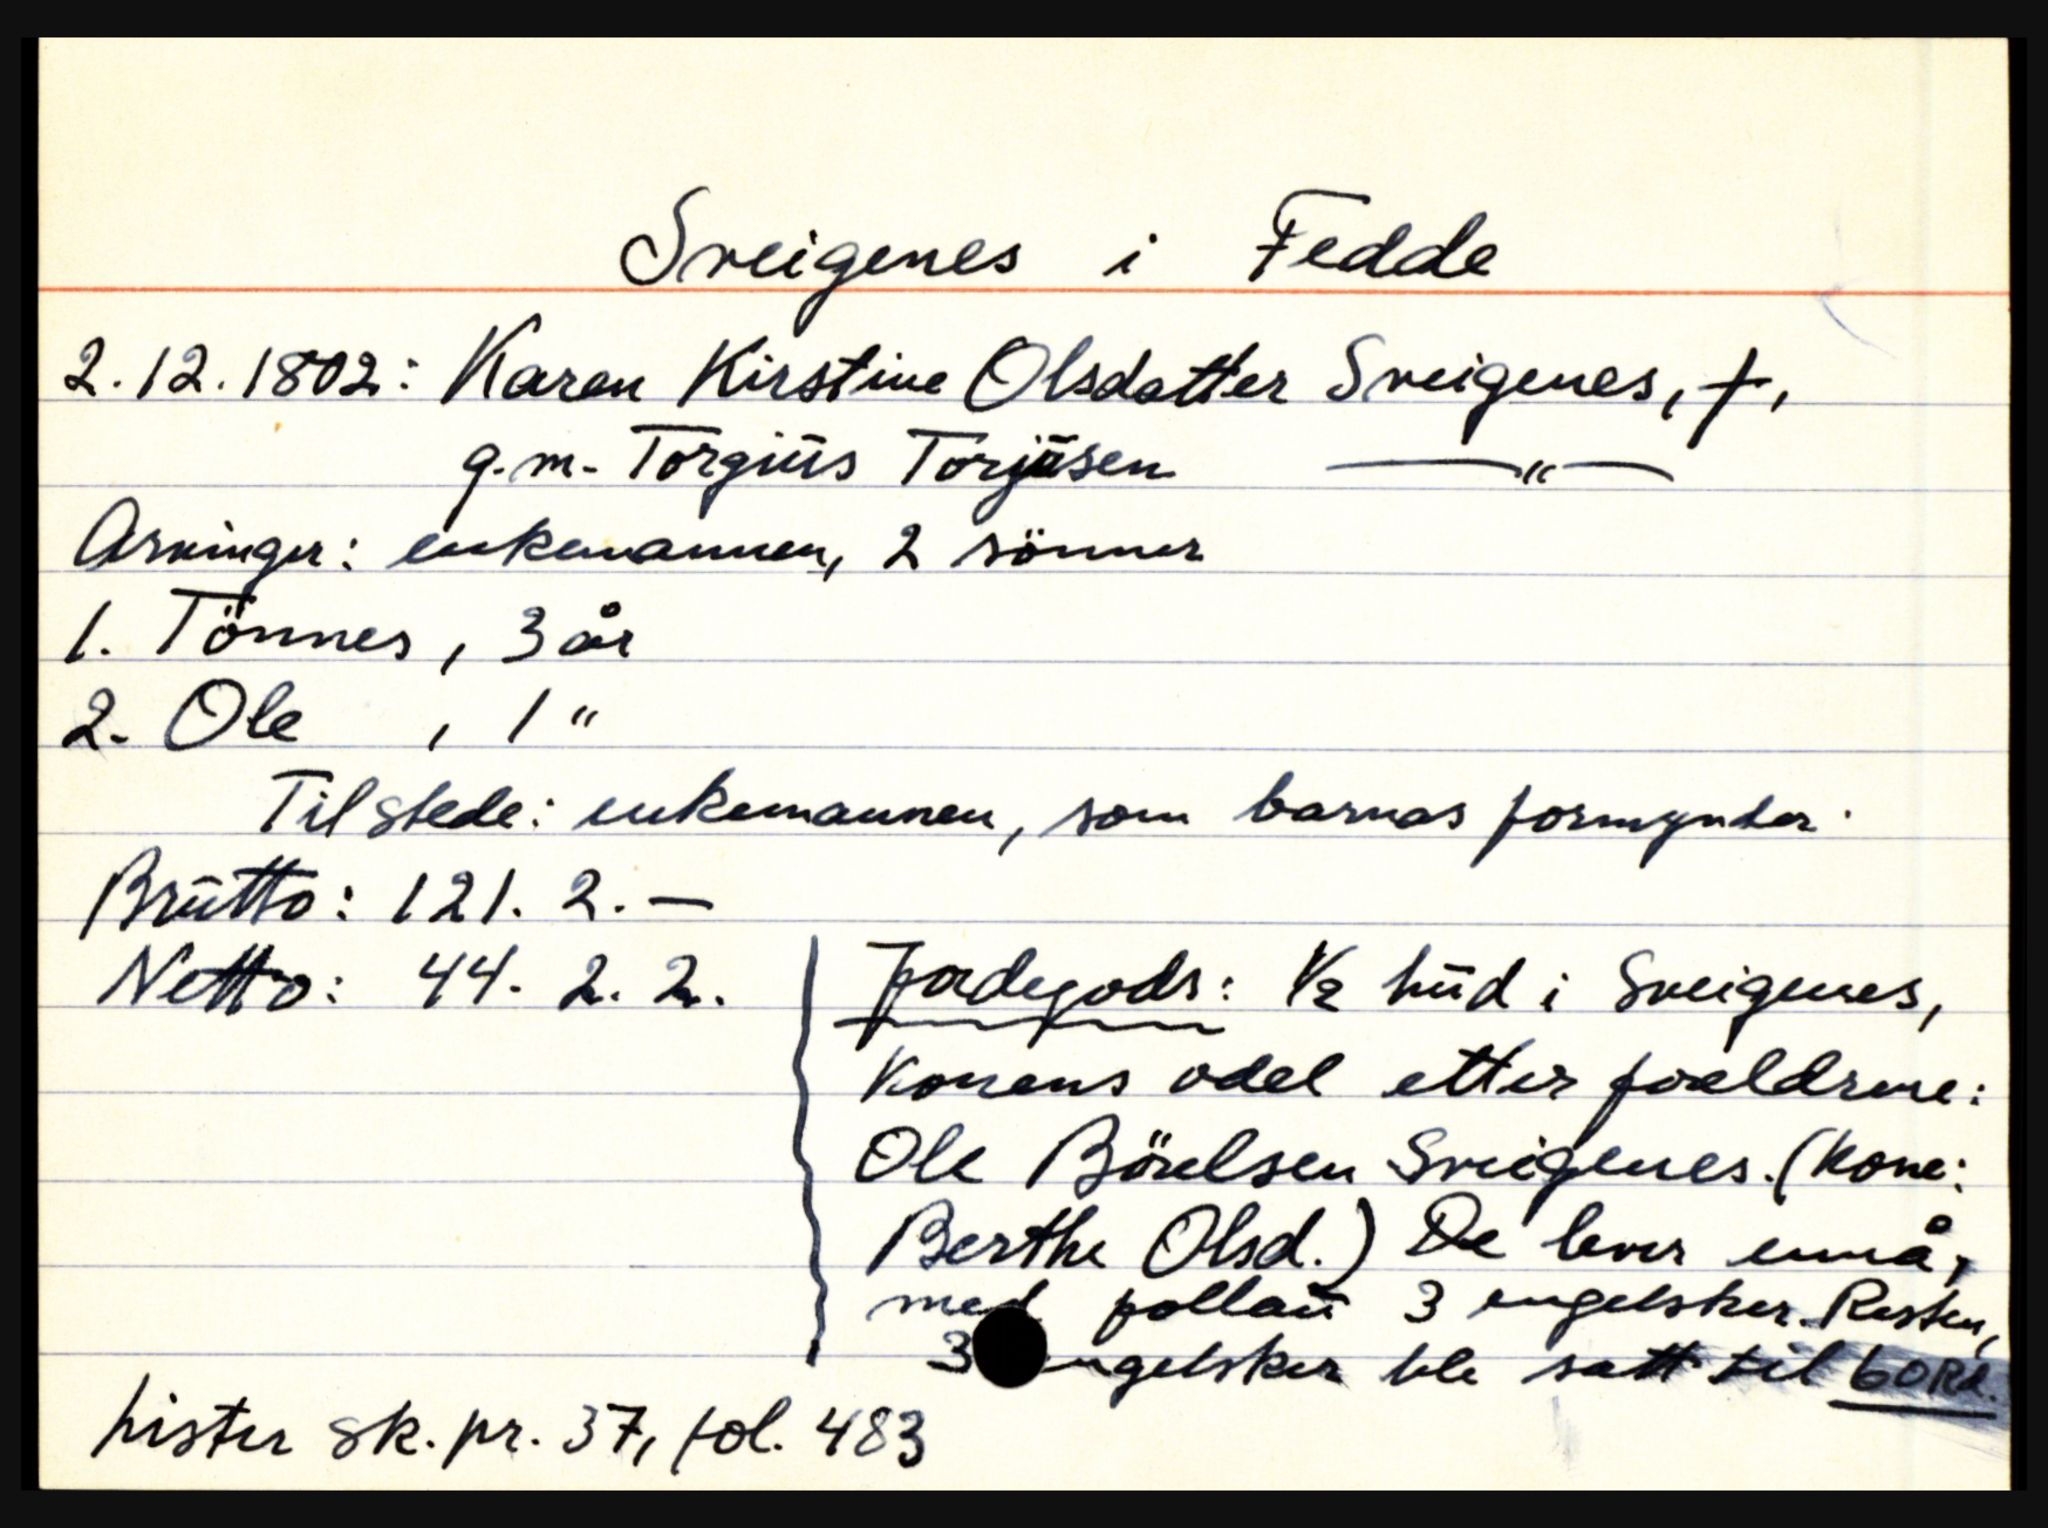 Sveigenes i Fedde
2.12.1802: Karen Kirstine Olsdatter Sveigenes, †,
g.m. Torgiŭs Torjŭsen —"—
Arvinger: enkemannen, 2 sönner
1. Tönnes, 3 år
2. Ole , 1 "
Tilstede: enkemannen, som barnas formynder.
Brŭtto: 121. 2. —
Netto: 44. 2. 2.
Jordegods: ½ hŭd i Sveigenes,
konens odel etter foreldrene:
Ole Börelsen Sveigenes. (Kone:
Berthe Olsd.) De lever ennå,
med pollaŭ 3 engelsker. Resten,
3 engelsker ble satt til 60 Rd.
Lister sk.pr. 37, fol. 483